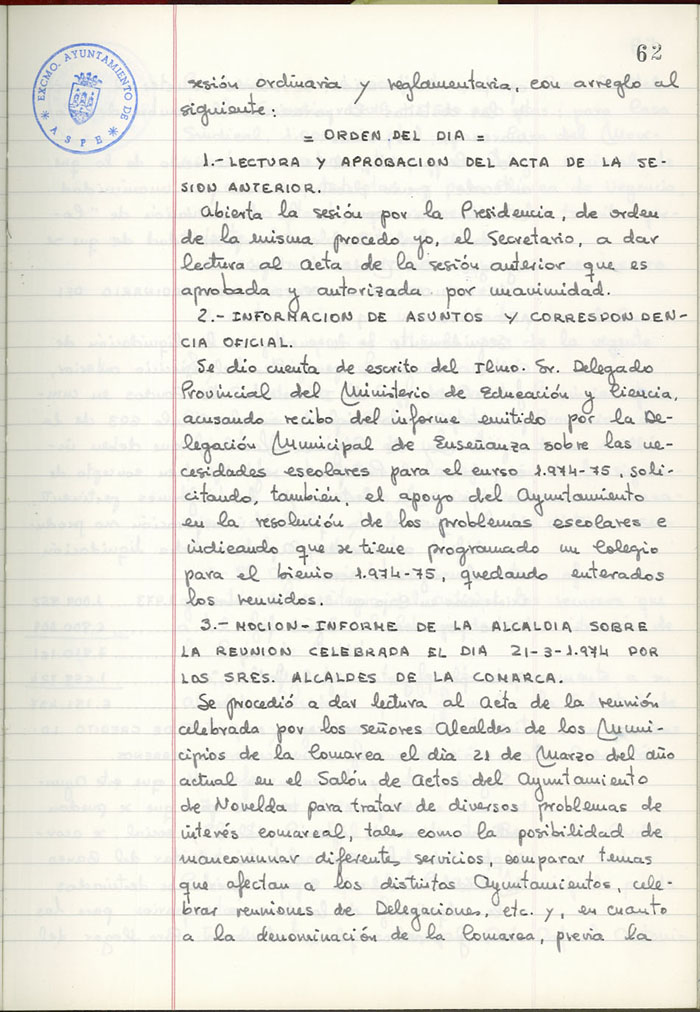 62
EXCMO. AYUNTAMIENTO DE
* ASPE *
sesión ordinaria y reglamentaria, con arreglo al
siguiente:
= ORDEN DEL DIA =
1.- LECTURA Y APROBACION DEL ACTA DE LA SE-
SION ANTERIOR.
Abierta la sesión por la Presidencia, de orden
de la misma procedo yo, el Secretario, a dar
lectura al acta de la sesión anterior que es
aprobada y autorizada por unavimidad.
2.- INFORMACION DE ASUNTOS Y CORRESPONDEN-
CIA OFICIAL.
Se dio cuenta de escrito del Ilmo. Sr. Delegado
Provincial del Ministerio de Educación y Ciencia,
acusando recibo del informe emitido por la De-
legación Municipal de Enseñanza sobre las ne-
cesidades escolares para el curso 1.974-75, soli-
citando, también, el apoyo del Ayuntamiento
en la resolución de los problemas escolares e
indicando que se tiene programado un Colegio
para el bienio 1.974-75, quedando enterados
los reunidos.
3.- MOCION-INFORME DE LA ALCALDIA SOBRE
LA REUNION CELEBRADA EL DIA 21-3-1.974 POR
LOS SRES. ALCALDES DE LA COMARCA.
Se procedió a dar lectura al Acta de la reunión
celebrada por los señores Alcaldes de los Muni-
cipios de la Comarca el día 21 de Marzo del año
actual en el Salón de Actos del Ayuntamiento
de Novelda para tratar de diversos problemas de
interés comarcal, tales como la posibilidad de
mancomunar diferentes servicios, comparar temas
que afectan a los distintos Ayuntamientos, cele-
brar reuniones de Delegaciones, etc. y, en cuanto
a la denominación de la Comarca, previa la